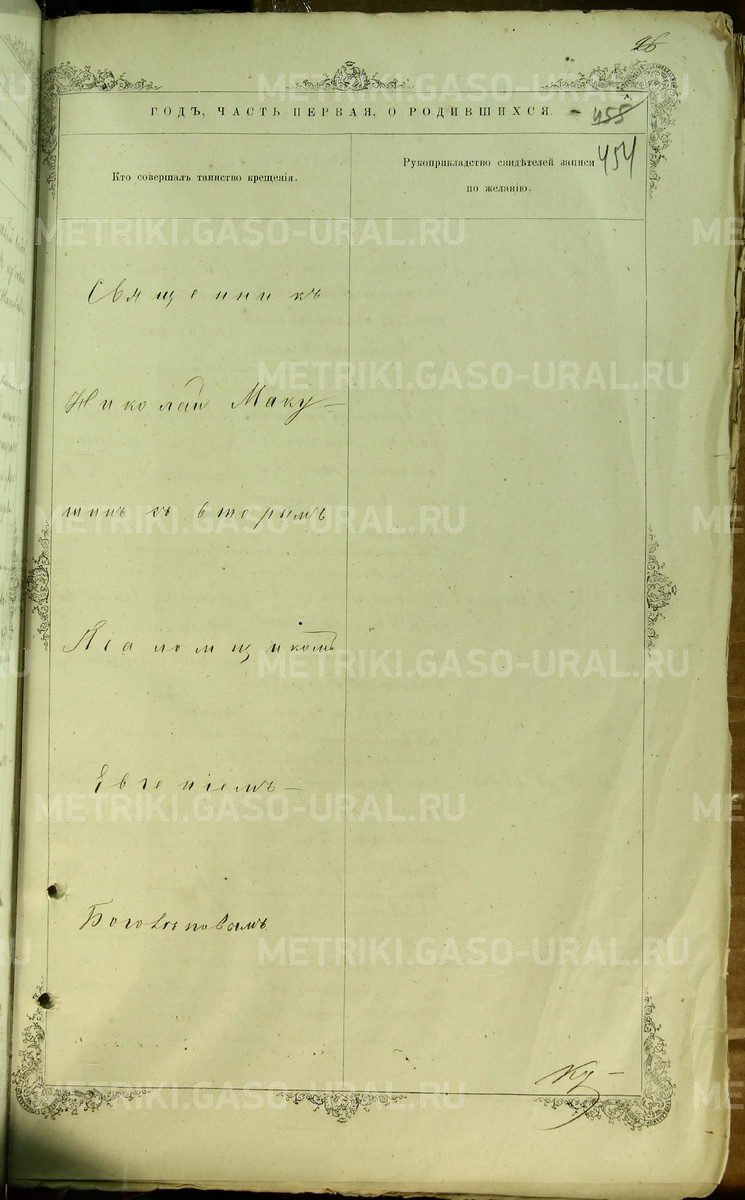 26
ГОДЪ, ЧАСТЬ ПЕРВАЯ, О РОДИВШИХСЯ.
455
454
Кто совершалъ таинство крещенія.
Рукоприкладство свидѣтелей записи
по желанію.
Священникъ
Николай Маку-
шинъ съ вторымъ
Псаломщикомъ
Евгеніемъ
Богословомъ
METRIKI.GASO-URAL.RU